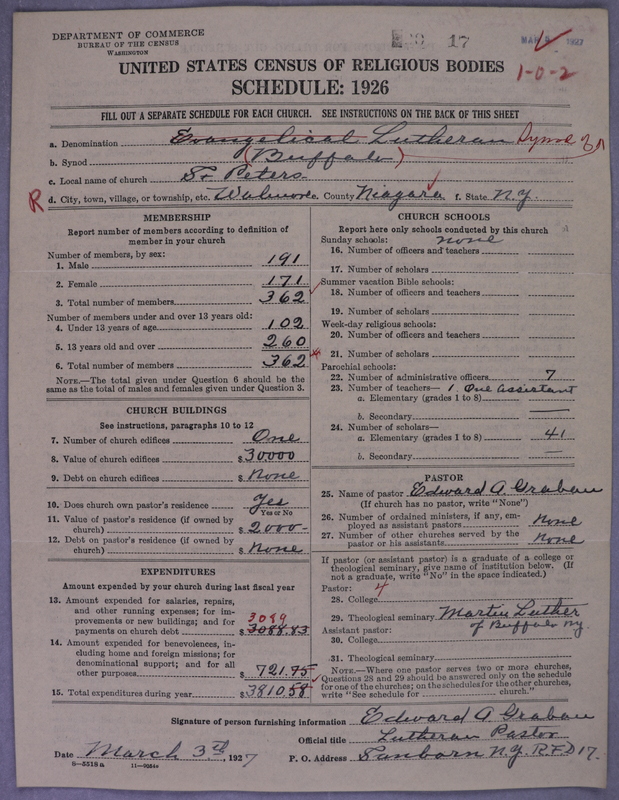 DEPARTMENT OF COMMERCE
BUREAU OF THE CENSUS
WASHINGTON
17
MAR 5 1927
1-0-2
UNITED STATES CENSUS OF RELIGIOUS BODIES
SCHEDULE: 1926
FILL OUT A SEPARATE SCHEDULE FOR EACH CHURCH. SEE INSTRUCTIONS ON THE BACK OF THIS SHEET
a. Denomination Evangelical Lutheran Synod of
b. Synod (Buffalo)
c. Local name of church St. Peters
R d. City, town, village, or township, etc. Walmore. County Niagara f. State N.Y.
MEMBERSHIP
Report number of members according to definition of
member in your church
Number of members, by sex:
1. Male 191
2. Female 171
3. Total number of members 362
Number of members under and over 13 years old:
4. Under 13 years of age 102
5. 13 years old and over 260
6. Total number of members 362
NOTE.—The total given under Question 6 should be the
same as the total of males and females given under Question 3.
CHURCH BUILDINGS
See instructions, paragraphs 10 to 12
7. Number of church edifices One
8. Value of church edifices $ 30000
9. Debt on church edifices $ None
10. Does church own pastor's residence? Yes
Yes or No
11. Value of pastor's residence (if owned by
church) $ 2000-
12. Debt on pastor's residence (if owned by
church) $ None
EXPENDITURES
Amount expended by your church during last fiscal year
13. Amount expended for salaries, repairs,
and other running expenses; for im-
provements or new buildings; and for
3089
payments on church debt $ 3088.83
14. Amount expended for benevolences, in-
cluding home and foreign missions; for
denominational support; and for all
other purposes $ 721.75
15. Total expenditures during year $ 3810.58
CHURCH SCHOOLS
Report here only schools conducted by this church
Sunday schools: none
16. Number of officers and teachers
17. Number of scholars
Summer vacation Bible schools:
18. Number of officers and teachers
19. Number of scholars
Week-day religious schools:
20. Number of officers and teachers
21. Number of scholars
Parochial schools:
22. Number of administrative officers 7
23. Number of teachers— 1. One assistant
a. Elementary (grades 1 to 8)
b. Secondary —
24. Number of scholars—
a. Elementary (grades 1 to 8) 41
b. Secondary —
PASTOR
25. Name of pastor Edward A. Grabau
(If church has no pastor, write "None")
26. Number of ordained ministers, if any, em-
ployed as assistant pastors None
27. Number of other churches served by the
pastor or his assistants None
If pastor (or assistant pastor) is a graduate of a college or
theological seminary, give name of institution below. (If
not a graduate, write "No" in the space indicated.)
Pastor: 4
28. College
29. Theological seminary Martin Luther
Assistant pastor: of Buffalo Ny.
30. College
31. Theological seminary
NOTE.—Where one pastor serves two or more churches,
Questions 28 and 29 should be answered only on the schedule
for one of the churches; on the schedules for the other churches,
write "See schedule for church."
Signature of person furnishing information Edward A Grabau
Official title Lutheran Pastor
Date March 3th, 1927 P. O. Address Sanborn N.Y. R.F.D 17.
8-5518a 11-9054a